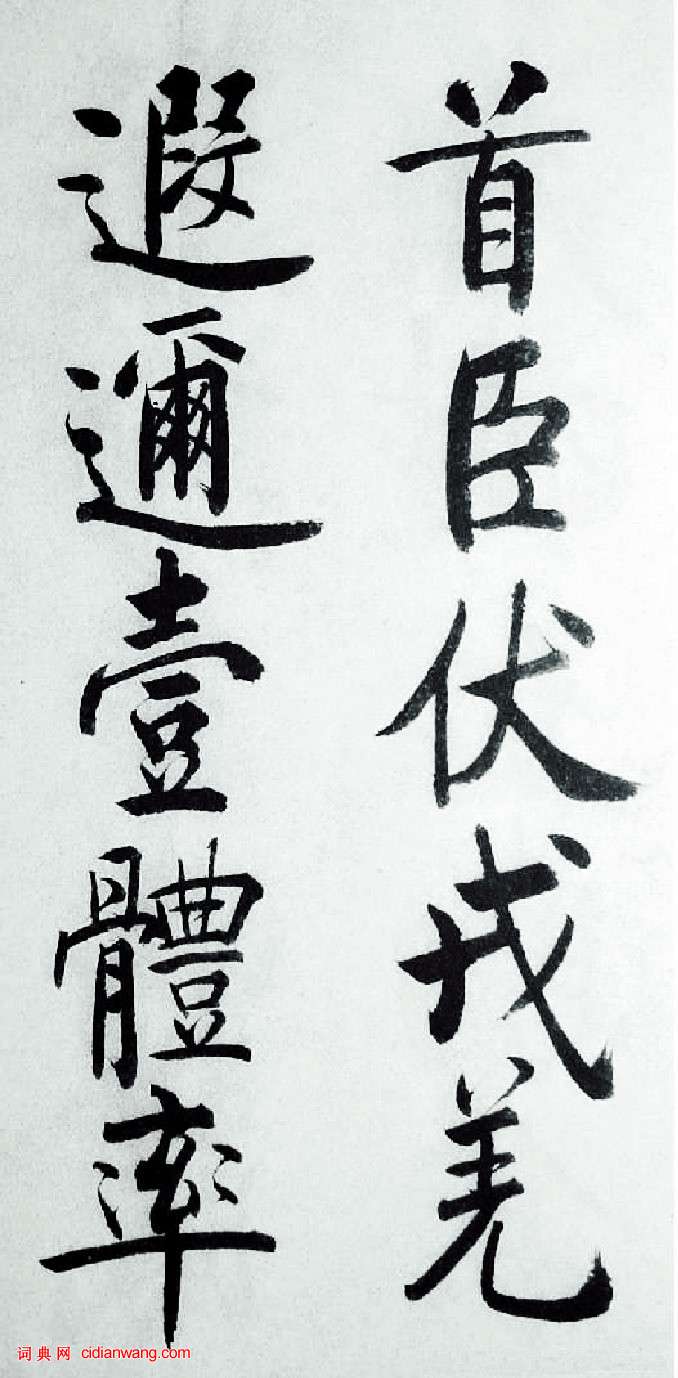 首臣伏戎羌
遐邇壹體率
词典网 cidianwang.com